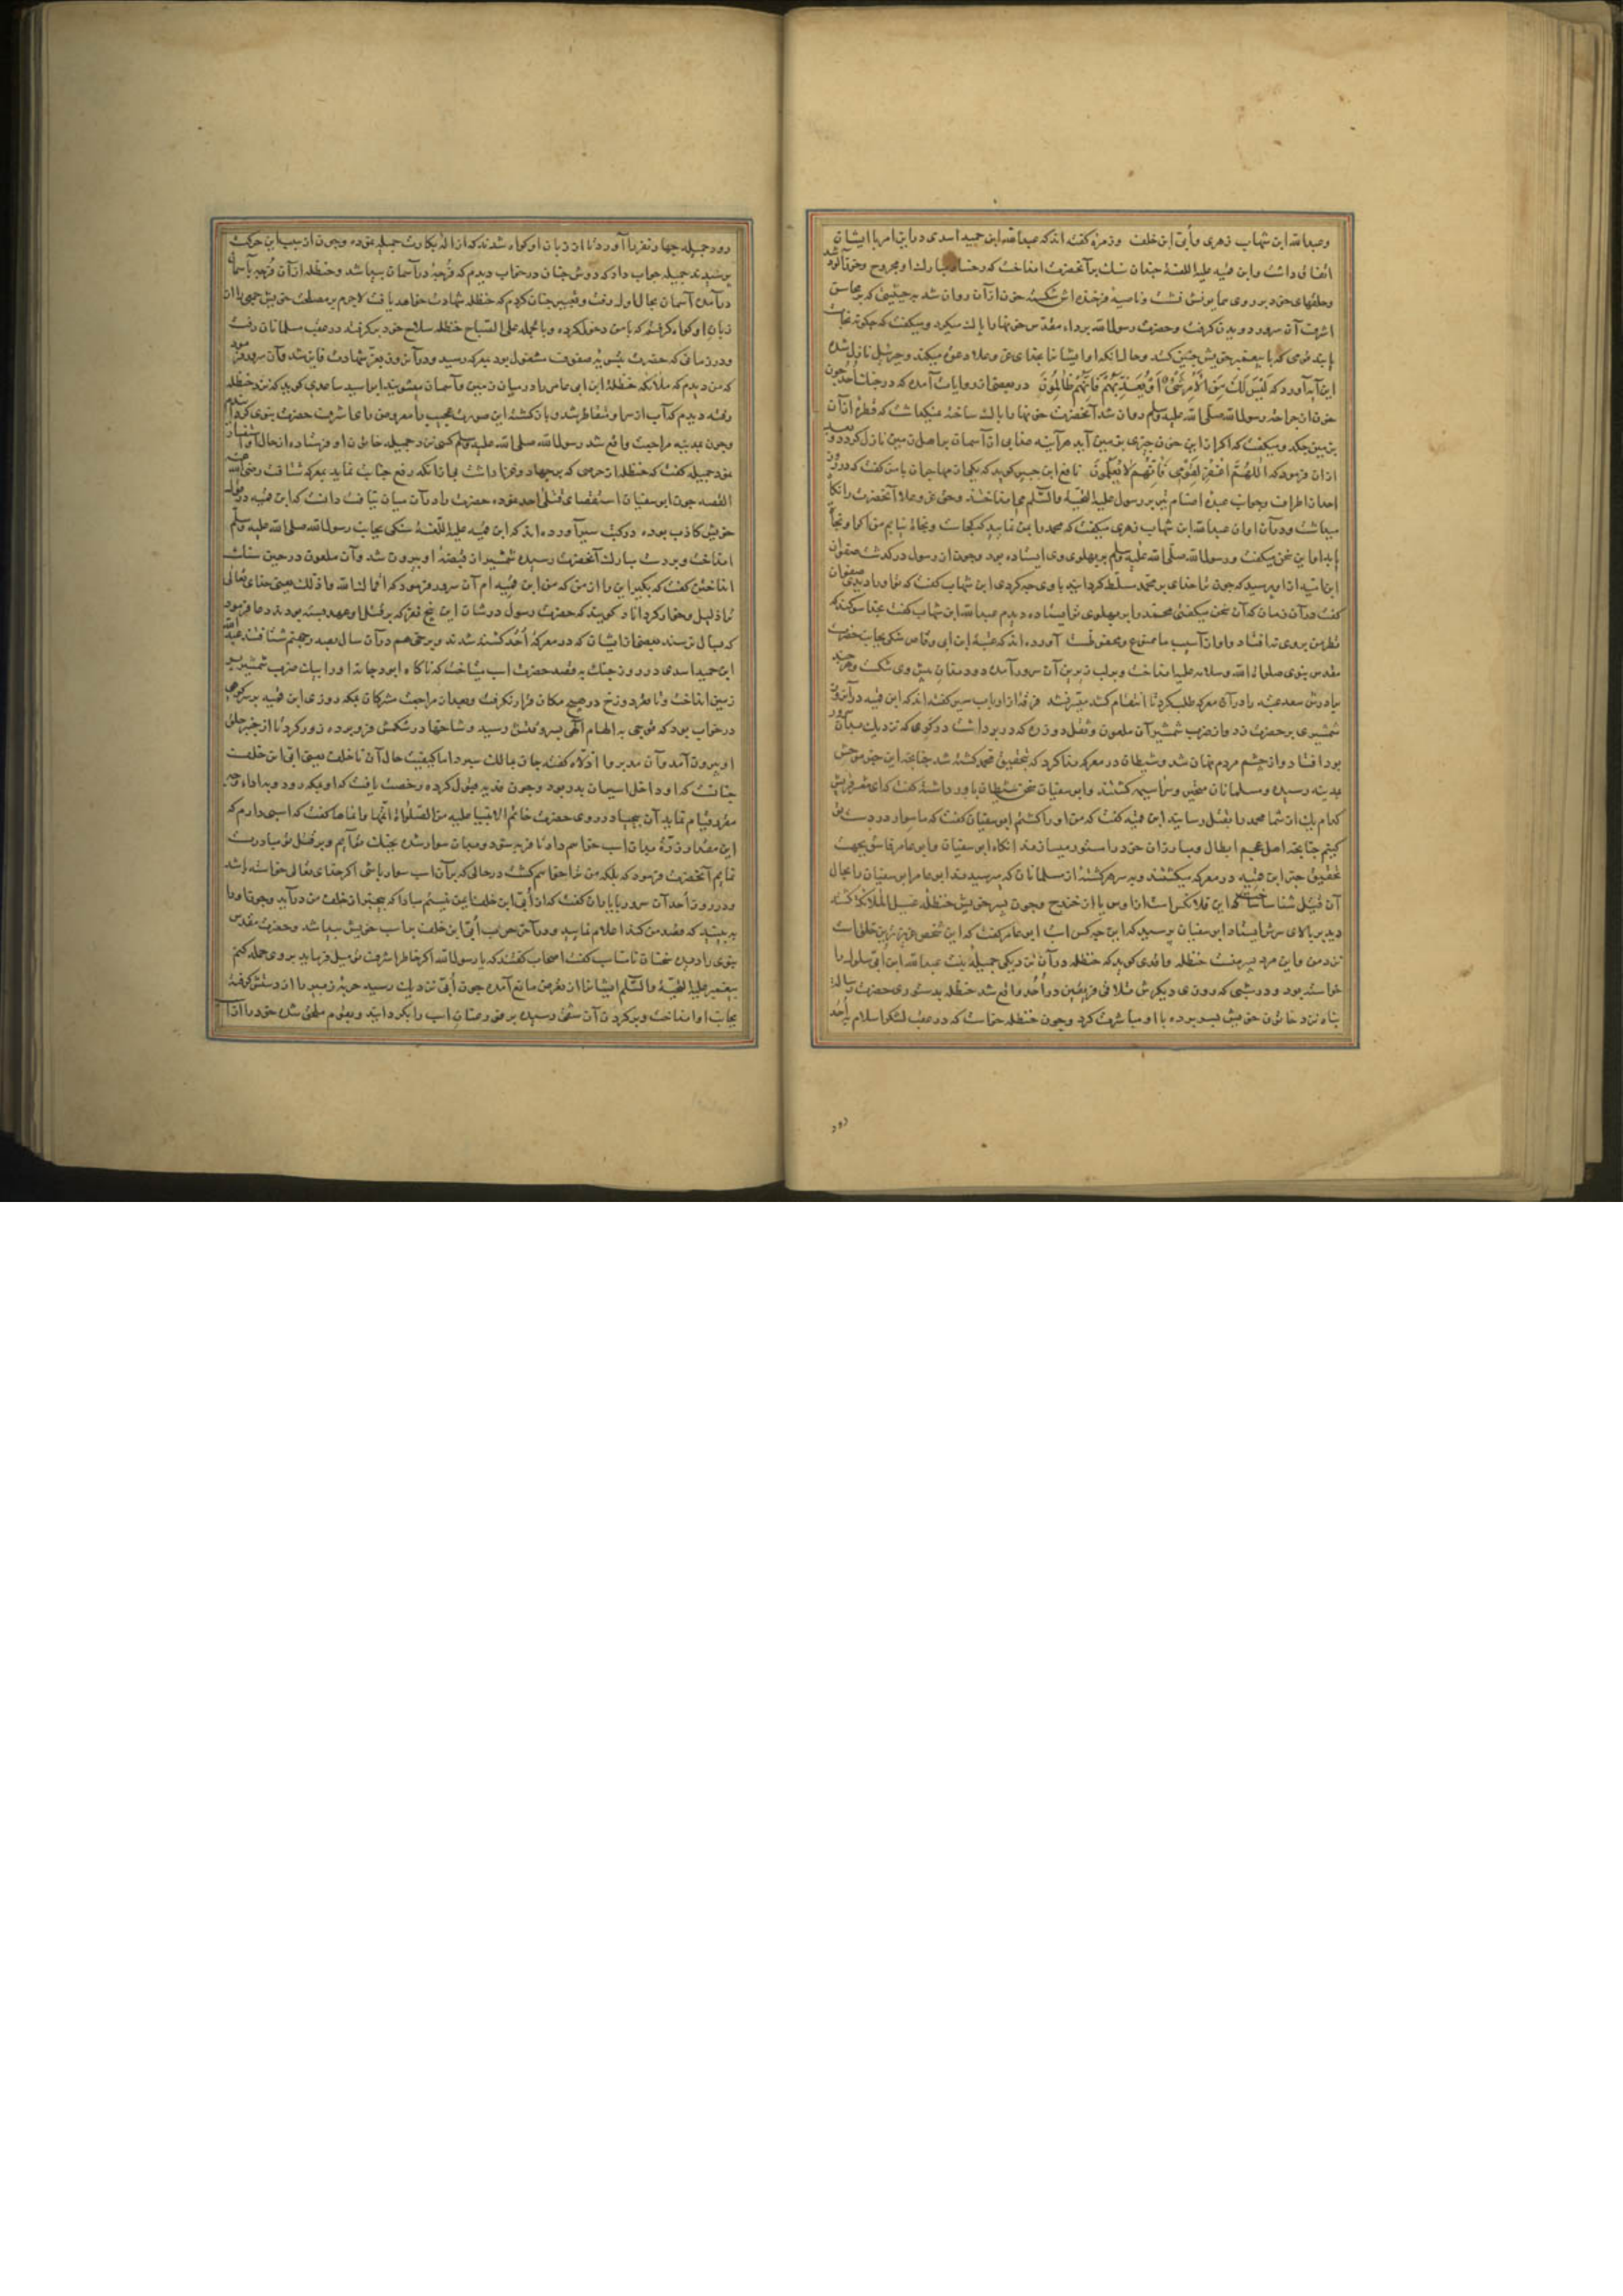 وعبدالله ابن شهاب زهری وأبی ابن خلف وزمره گفته اند که عبدالله ابن حمید اسدی درین امر با ایشان
اتفاق داشت وابن قمیه علیه اللعنة چندان سنک بر آنحضرت انداخت که رخساره مبارک او مجروح وخون آلود شد
وحلقهای خود بر روی همایونش نشست وناصیهٔ فرخنده اش شکسته خون از آن روان شد به حیثیتی که بر محاسن
اشرف آن سرور دویدن گرفت وحضرت رسول الله برداء مقدس خونها را پاک میکرد و میگفت که چگونه نجات
یابند قومی که با پیغمبر خویش چنین کنند وحال آنکه او ایشانرا بخدای عز وعلا دعوة میکند وجبرئیل نازل شده
این آیه آورد که لَیْسَ لَكَ مِنَ الْأَمْرِ شَیْءٌ أَوْ یُعَذِّبَهُمْ فَإِنَّهُمْ ظَالِمُونَ در بعضی از روایات آمده که در جنک أحد چون
خون از جراحة رسول الله صلی الله علیه وسلم روان شد آنحضرت خونها را پاک ساخته نمیگذاشت که قطرهٔ از آن
بزمین چکد و میگفت که اگر ازین خون چیزی بزمین آید هر آینه عذابی از آسمان بر اهل زمین نازل گردد و بعد
ازان فرمود که اللهُمَّ اغْفِرْ لِقَوْمِی فَإِنَّهُمْ لَا یَعْلَمُونَ نافع ابن جبیر گوید که یکی از مهاجران با من گفت که در روز
احد از اطراف وجوانب عبدهٔ اصنام تیر بر رسول علیه التحیة والسلم می انداختند وحق عز وعلا آنحضرت را نگاه
میداشت ودر آن اوان عبدالله ابن شهاب زهری میگفت که محمد را بمن نمایید که کجاست ونجاة نیابم من اگر او نجاة
یابد اما این سخن میگفت ورسول الله صلی الله علیه وسلم بر پهلوی وی ایستاده بود وچون از رسول درگذشت صفوان
ابن امیه ازو پرسید که چون ترا خدای بر محمد مسلط گردانید با وی چه کردی ابن شهاب گفت که تو او را دیدی صفوان
گفت در آن زمان که آن سخن میگفتی محمد را بر پهلوی تو ایستاده دیدم عبدالله ابن شهاب گفت بخدا سوگند که
نظر من بروی نیفتاد واو از آسیب ما ممنوع ومحفوظست آورده اند که عتبة ابن ابی وقاص سنکی بجانب حضرت
مقدس نبوی صلوات الله وسلامه علیه انداخت وبر لب زیرین آن سرور آمده دو دندان پیش وی شکست وهر چند
برادرش سعد عتبه را در آن معرکه طلب کرد تا انتقام کشد میسر نشد فرقهٔ از ارباب سیر گفته اند که ابن قمیه در آن روز
شمشیری بر حضرت زد واز ضرب شمشیر آن ملعون وثقل دو زره که در بر داشت در گوی که نزدیک بدان سرور
بود افتاد واز چشم مردم نهان شد وشیطان در معرکه ندا کرد که بتحقیق محمد کشته شد چنانچه این خبر موحش
بمدینه رسید ومسلمانان متحیر وسراسیمه گشتند وابو سفیان سخن شیطان باور داشته گفت که ای معشر قریش
کدام یک از شما محمد را بقتل رسانید ابن قمیه گفت که من او را کشتم ابو سفیان گفت که ما سوار در دست تو
کنیم چنانچه اهل عجم ابطال ومبارزان خود را سوار میسازند انگاه ابو سفیان وابو عامر فاسق بجهت
تحقیق خبر ابن قمیه در معرکه میگشتند وبه هر کشتهٔ از مسلمانان که میرسیدند ابو عامر ابو سفیان را بحال
آن قتیل شناسا میساخت که این فلان کس است از اوس یا از خزرج وچون بسر خویش حنظله غسیل الملائکه گذشت
دید بر بالای سرش ایستاد ابو سفیان پرسید که این چه کس است ابو عامر گفت که این شخص عزیزترین خلق است
نزد من واین مرد پسر منست حنظله واقدی گوید که حنظله در آن نزدیکی جمیله بنت عبدالله ابن أبی سلول را
خواسته بود ودر شبی که روز دیگرش تلاقی فریقین در أحد واقع شد حنظله بدستوری حضرت رسالت
پناه نزد خاتون خویش بسر برده با او مباشرت کرد وچون حنظله خواست که در عقب لشکر اسلام به أحد
رود
رود جمیله چهار نفر را آورد تا از زبان او گواه شدند که ازاله بکارت جمیله نموده وچون از سبب این حرکت
پرسیدند جمیله جواب داد که دوش چنان در خواب دیدم که فرجهٔ در آسمان پیدا شد وحنظله از آن فرجه بآسمان
در آمده آسمان بحال اول رفت وتعبیر چنان کردم که حنظله شهادت خواهد یافت لاجرم بر مصلحت خویش جمعی را از
زبان او گواه گرفتم که با من دخول کرده وبالجمله علی الصباح حنظله سلاح خود برگرفته در عقب مسلمانان رفت
ودر زمانی که حضرت بتسویهٔ صفوف مشغول بود بمعرکه رسید ودر آن روز بعز شهادت فایز شد وآن سرور فرمود
که من دیدم که ملائکه حنظلة ابن ابی عامر را در میان زمین وآسمان میشویند ابو اسید ساعدی گوید که نزد حنظله
رفته دیدم که آب از سر او متقاطر شد وبازگشته این صورت عجیب را معروض رای اشرف حضرت نبوی گردانیدم
وچون بمدینه مراجعت واقع شد رسول الله صلی الله علیه وسلم کسی نزد جمیله خاتون او فرستاده از حال او استفسار
نمود جمیله گفت که حنظله از حرصی که بر جهاد وغزا داشت بی از آنکه رفع جنابت نماید بمعرکه شتافت رضی الله عنه
القصه چون ابو سفیان استقصای قتلی احد نموده حضرت را در آن میان نیافت دانست که ابن قمیه در قول
خویش کاذب بوده در کتب سیر آورده اند که ابن قمیه علیه اللعنة سنکی بجانب رسول الله صلی الله علیه وسلم
انداخت وبر دست مبارک آنحضرت رسیده شمشیر از قبضهٔ او بیرون شد وآن ملعون در حین سنک
انداختن گفت که بگیر این را از من که من ابن قمیه ام آن سرور فرمود که اقماك الله واذلك یعنی خدای تعالی
ترا ذلیل وخوار گرداناد گویند که حضرت رسول در شان این پنج نفر که بر قتل او عهد بسته بودند دعا فرمود
که بسال نرسند بعضی از ایشان که در معرکهٔ أحد کشته شدند وبرخی هم در آن سال بعبه بجهنم شتافتند عبدالله
ابن حمید اسدی در روز جنک به قصد حضرت اسب میتاخت که ناگاه ابو دجانه او را بیک ضرب شمشیر بر
زمین انداخت وتا قعر دوزخ در هیچ مکان قرار نگرفت وبعد از مراجعت مشرکان بمکه روزی ابن قمیه بر سر کوهی
در خواب بود که قوچی به الهام آلهی بسر وقتش رسید وشاخها در شکمش فرو برده زور کرد تا از حنجر حلق
او بیرون آمد وآن مدبر وا اذلاه گفته جان بمالک سپرد اما کیفیت حال آن ناخلف یعنی ابی ابن خلف
چنانست که او داخل اسیران بدر بود وچون فدیه قبول کرده رخصت یافت که او بمکه رود وبه اداء وجه
مقرر قیام نماید آن بیحیا در روی حضرت خاتم الانبیا علیه من الصلواة اتمها وانماها گفت که اسبی دارم که
این مقدار ذرة میان اسب خواسم داد تا فربه شود ومیان سوار شده بجنك تو آیم وبر قتل تو مبادرت
نمایم آنحضرت فرمود که بلکه من ترا خواسم کشت در حالی که بر آن اسب سوار باشی اگر خدای تعالی خواسته باشد
ودر روز أحد آن سرور با یاران گفت که از أبی ابن خلف ایمن نیستم مبادا که بیخبر از خلف من در آید وچون او را
به بینید که قصد من کند اعلام نمایید ودر آخر حرب أبی ابن خلف بر اسب خویش پیدا شد وحضرت مقدس
نبوی را دیده سخنان نامناسب گفت اصحاب گفتند که یا رسول الله اگر خاطر اشرفت میل فرماید بر وی حمله کنیم
پیغمبر علیه التحیة والسلم ایشانرا از تعرض مانع آمده چون أبی نزدیک رسید حربهٔ زبیر را از دستش گرفته
بجانب او انداخت وبر گردن آن شقی رسیده بر فور عنان اسب را بگردانید وبقوم ملحق شده خود را از آن